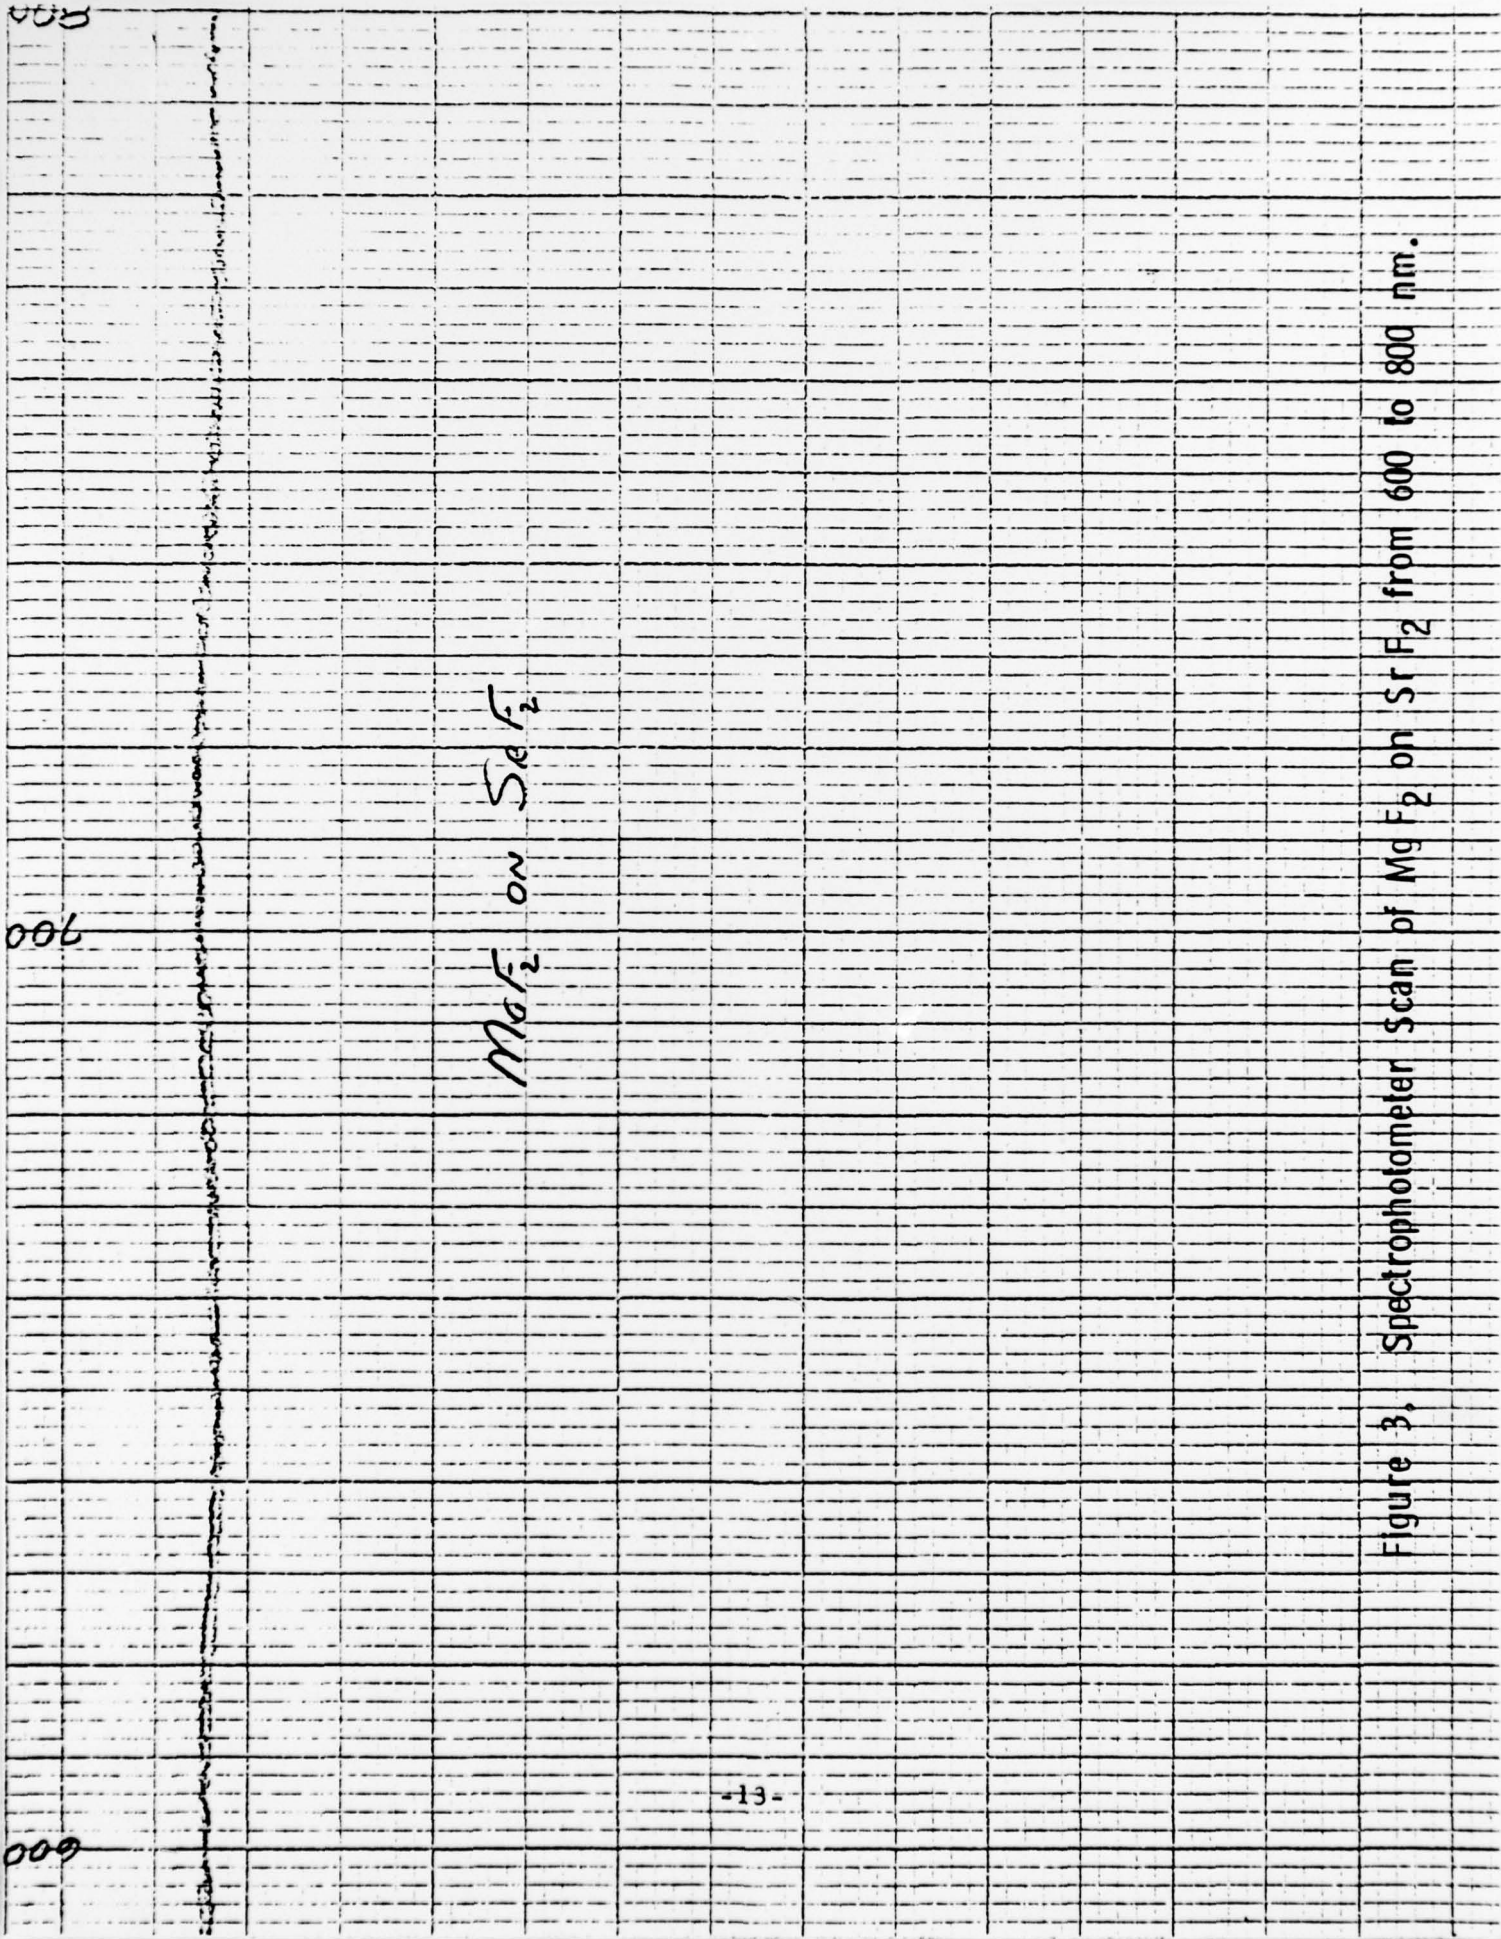 800
700
600
MgF2 ON SrF2
-13-
Figure 3. Spectrophotometer Scan of MgF2 on SrF2 from 600 to 800 nm.